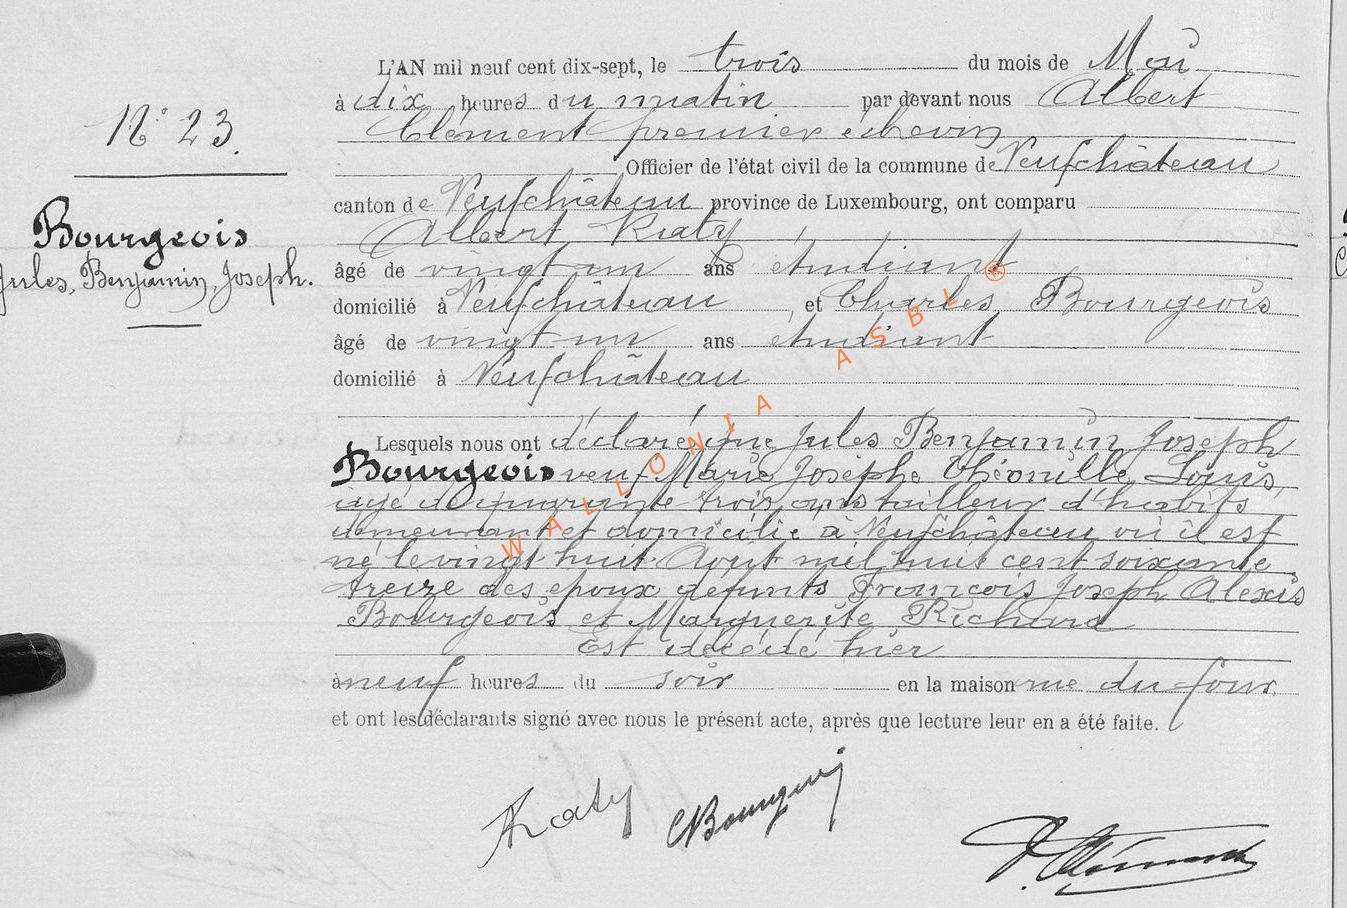 N° 23.
Bourgeois
Jules, Benjamin, Joseph.
L'AN mil neuf cent dix-sept, le trois du mois de Mai
à dix heures du matin par devant nous Albert
Clément premier échevin
Officier de l'état civil de la commune de Neufchâteau
canton de Neufchâteau province de Luxembourg, ont comparu
Albert Kraty
âgé de vingt un ans étudiant
domicilié à Neufchâteau, et Charles Bourgeois
âgé de vingt un ans étudiant
domicilié à Neufchâteau
Lesquels nous ont déclaré que Jules Benjamin Joseph
Bourgeois veuf Marie Josèphe Louis
âgé de quarante trois ans tailleur d'habits
demeurant et domicilié à Neufchâteau où il est
né le vingt huit Août mil huit cent soixante
treize des époux défunts François Joseph Alexis
Bourgeois et Marguerite Richard
Est décédé hier
à neuf heures du soir en la maison rue du four
et ont les déclarants signé avec nous le présent acte, après que lecture leur en a été faite.
CBourgeois
WALLONIA ASBL ®